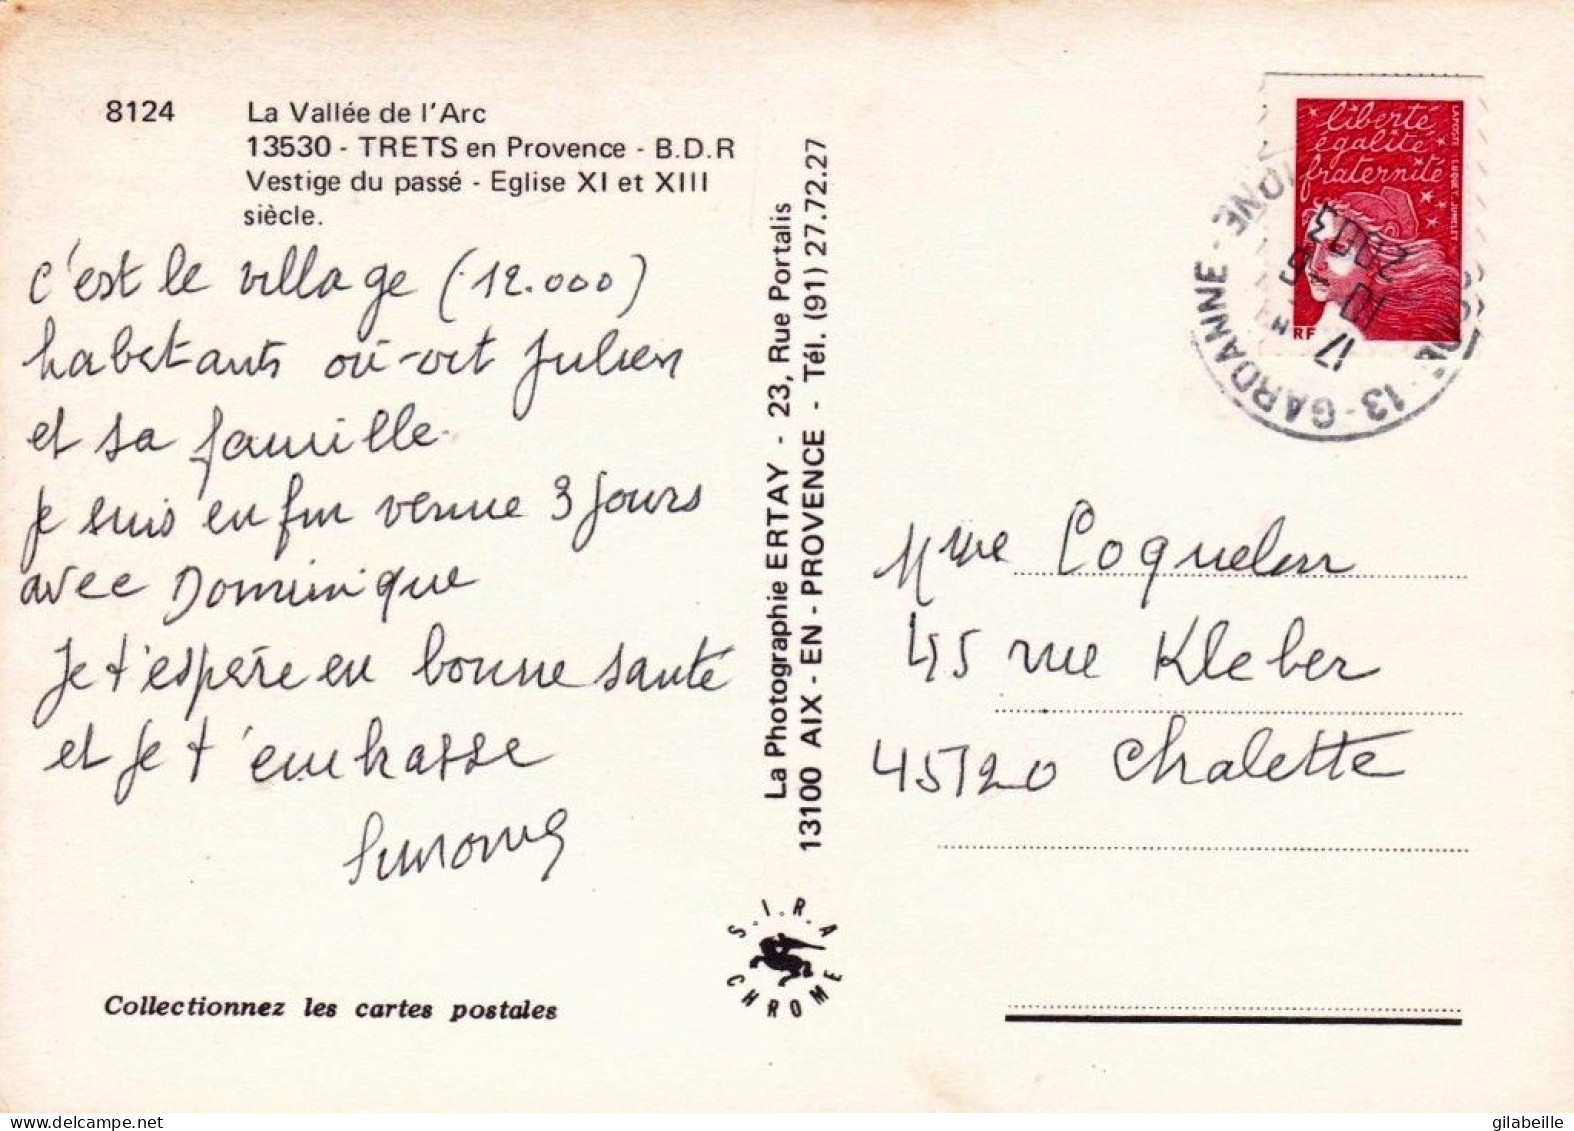 8124 La Vallée de l'Arc
13530 - TRETS en Provence - B.D.R
Vestige du passé - Eglise XI et XIII
siècle.
c'est le village (12.000)
habitants où vit Julien
et sa famille.
Je suis enfin venue 3 jours
avec Dominique
Je t'espère en bonne santé
et je t'embrasse
Simone
Collectionnez les cartes postales
La Photographie ERTAY - 23, Rue Portalis
13100 AIX - EN - PROVENCE - Tél. (91) 27.72.27
S.I.R.A
CHROME
liberté
égalité
fraternité
LA POSTE LUQUET, JUMELET
RF
13 - GARDANNE -
17 H
10 - 6
2003
Mme Coquelin
45 rue Kleber
45120 Chalette
delcampe.net
gilabeille